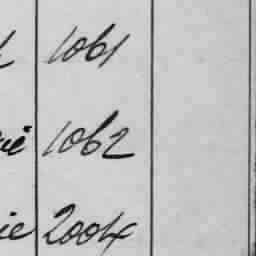 1061
ie 1062
ie 2004